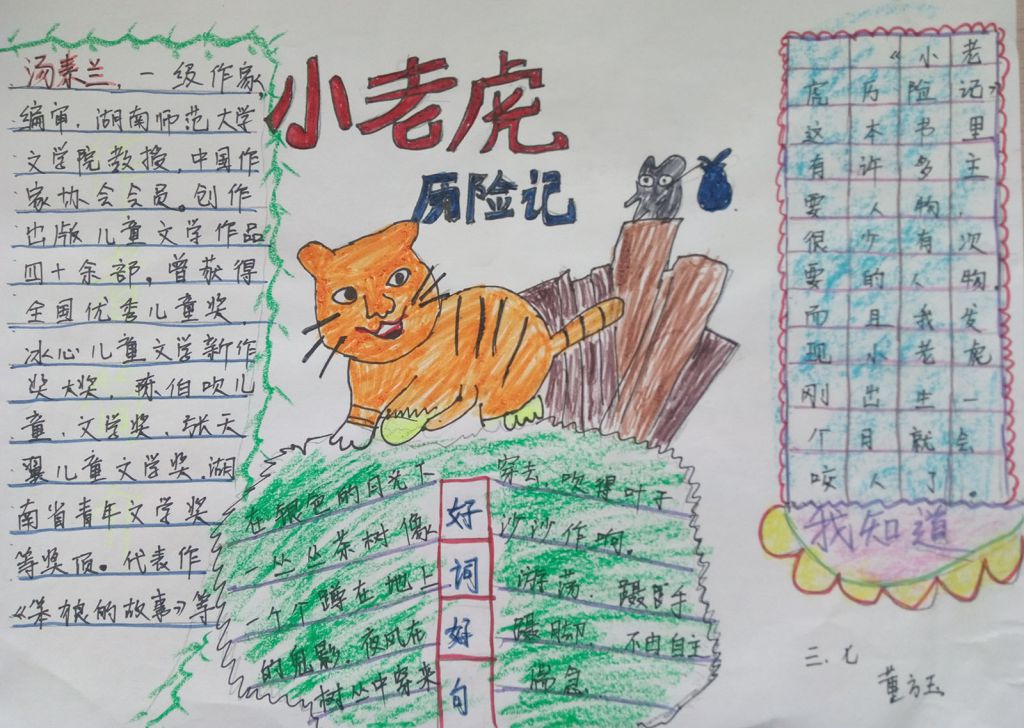 小老虎
历险记
汤素兰，一级作家，
编审，湖南师范大学
文学院教授，中国作
家协会会员。创作
出版儿童文学作品
四十余部，曾获得
全国优秀儿童奖，
冰心儿童文学新作
奖大奖，陈伯吹儿
童，文学奖，张天
翼儿童文学奖，湖
南省青年文学奖
等奖项。代表作
《笨狼的故事》等
在银色的月光下
一丛丛茶树像
一个个蹲在地上
的鬼影，夜风在
树丛中穿来
好
词
好
句
穿去，吹得叶子
沙沙作响。
游荡，蹑手
蹑脚，不由自主
喘息，
《小老
虎历险记》
这本书里
有许多主
要人物，
很少有次
要的人物。
而且我发
现小老虎
刚出生一
个月就会
咬人了。
我知道
三、七
董方玉